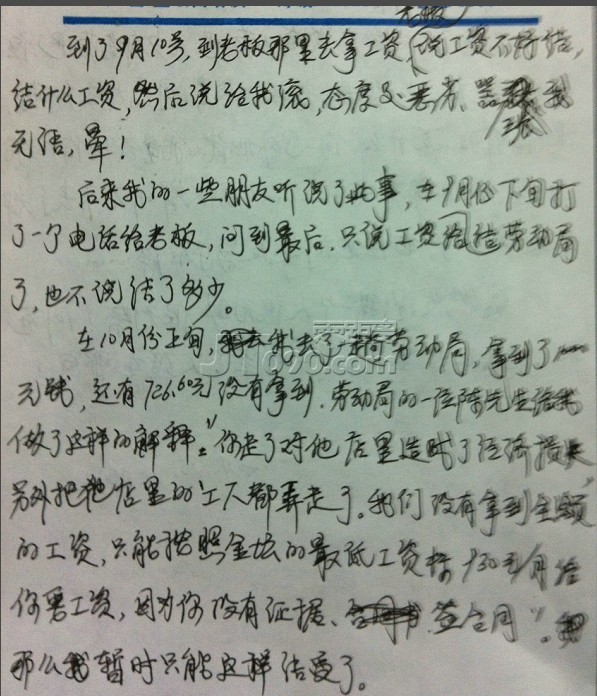 老板
到了9月10号,到老板那里去拿工资,说工资不好结,
结什么工资,然后说给我滚,态度及恶劣、嚣张 我
无语,晕!
后来我的一些朋友听说了此事,在9月份下旬打
了一个电话给老板,问到最后,只说工资给结劳动局
了,也不说结了多少。
在10月份上旬,我去了一趟劳动局,拿到了
元钱,还有726.60元没有拿到.劳动局的一位陈先生给我
做了这样的解释:"你走了对他店里造成了经济损失,
另外把他店里的工人都弄走了。我们没有拿到全额
的工资,只能按照金坛的最低工资标930元/月给
你要工资,因为你没有证据、签合同"。
那么我暂时只能这样结受了。